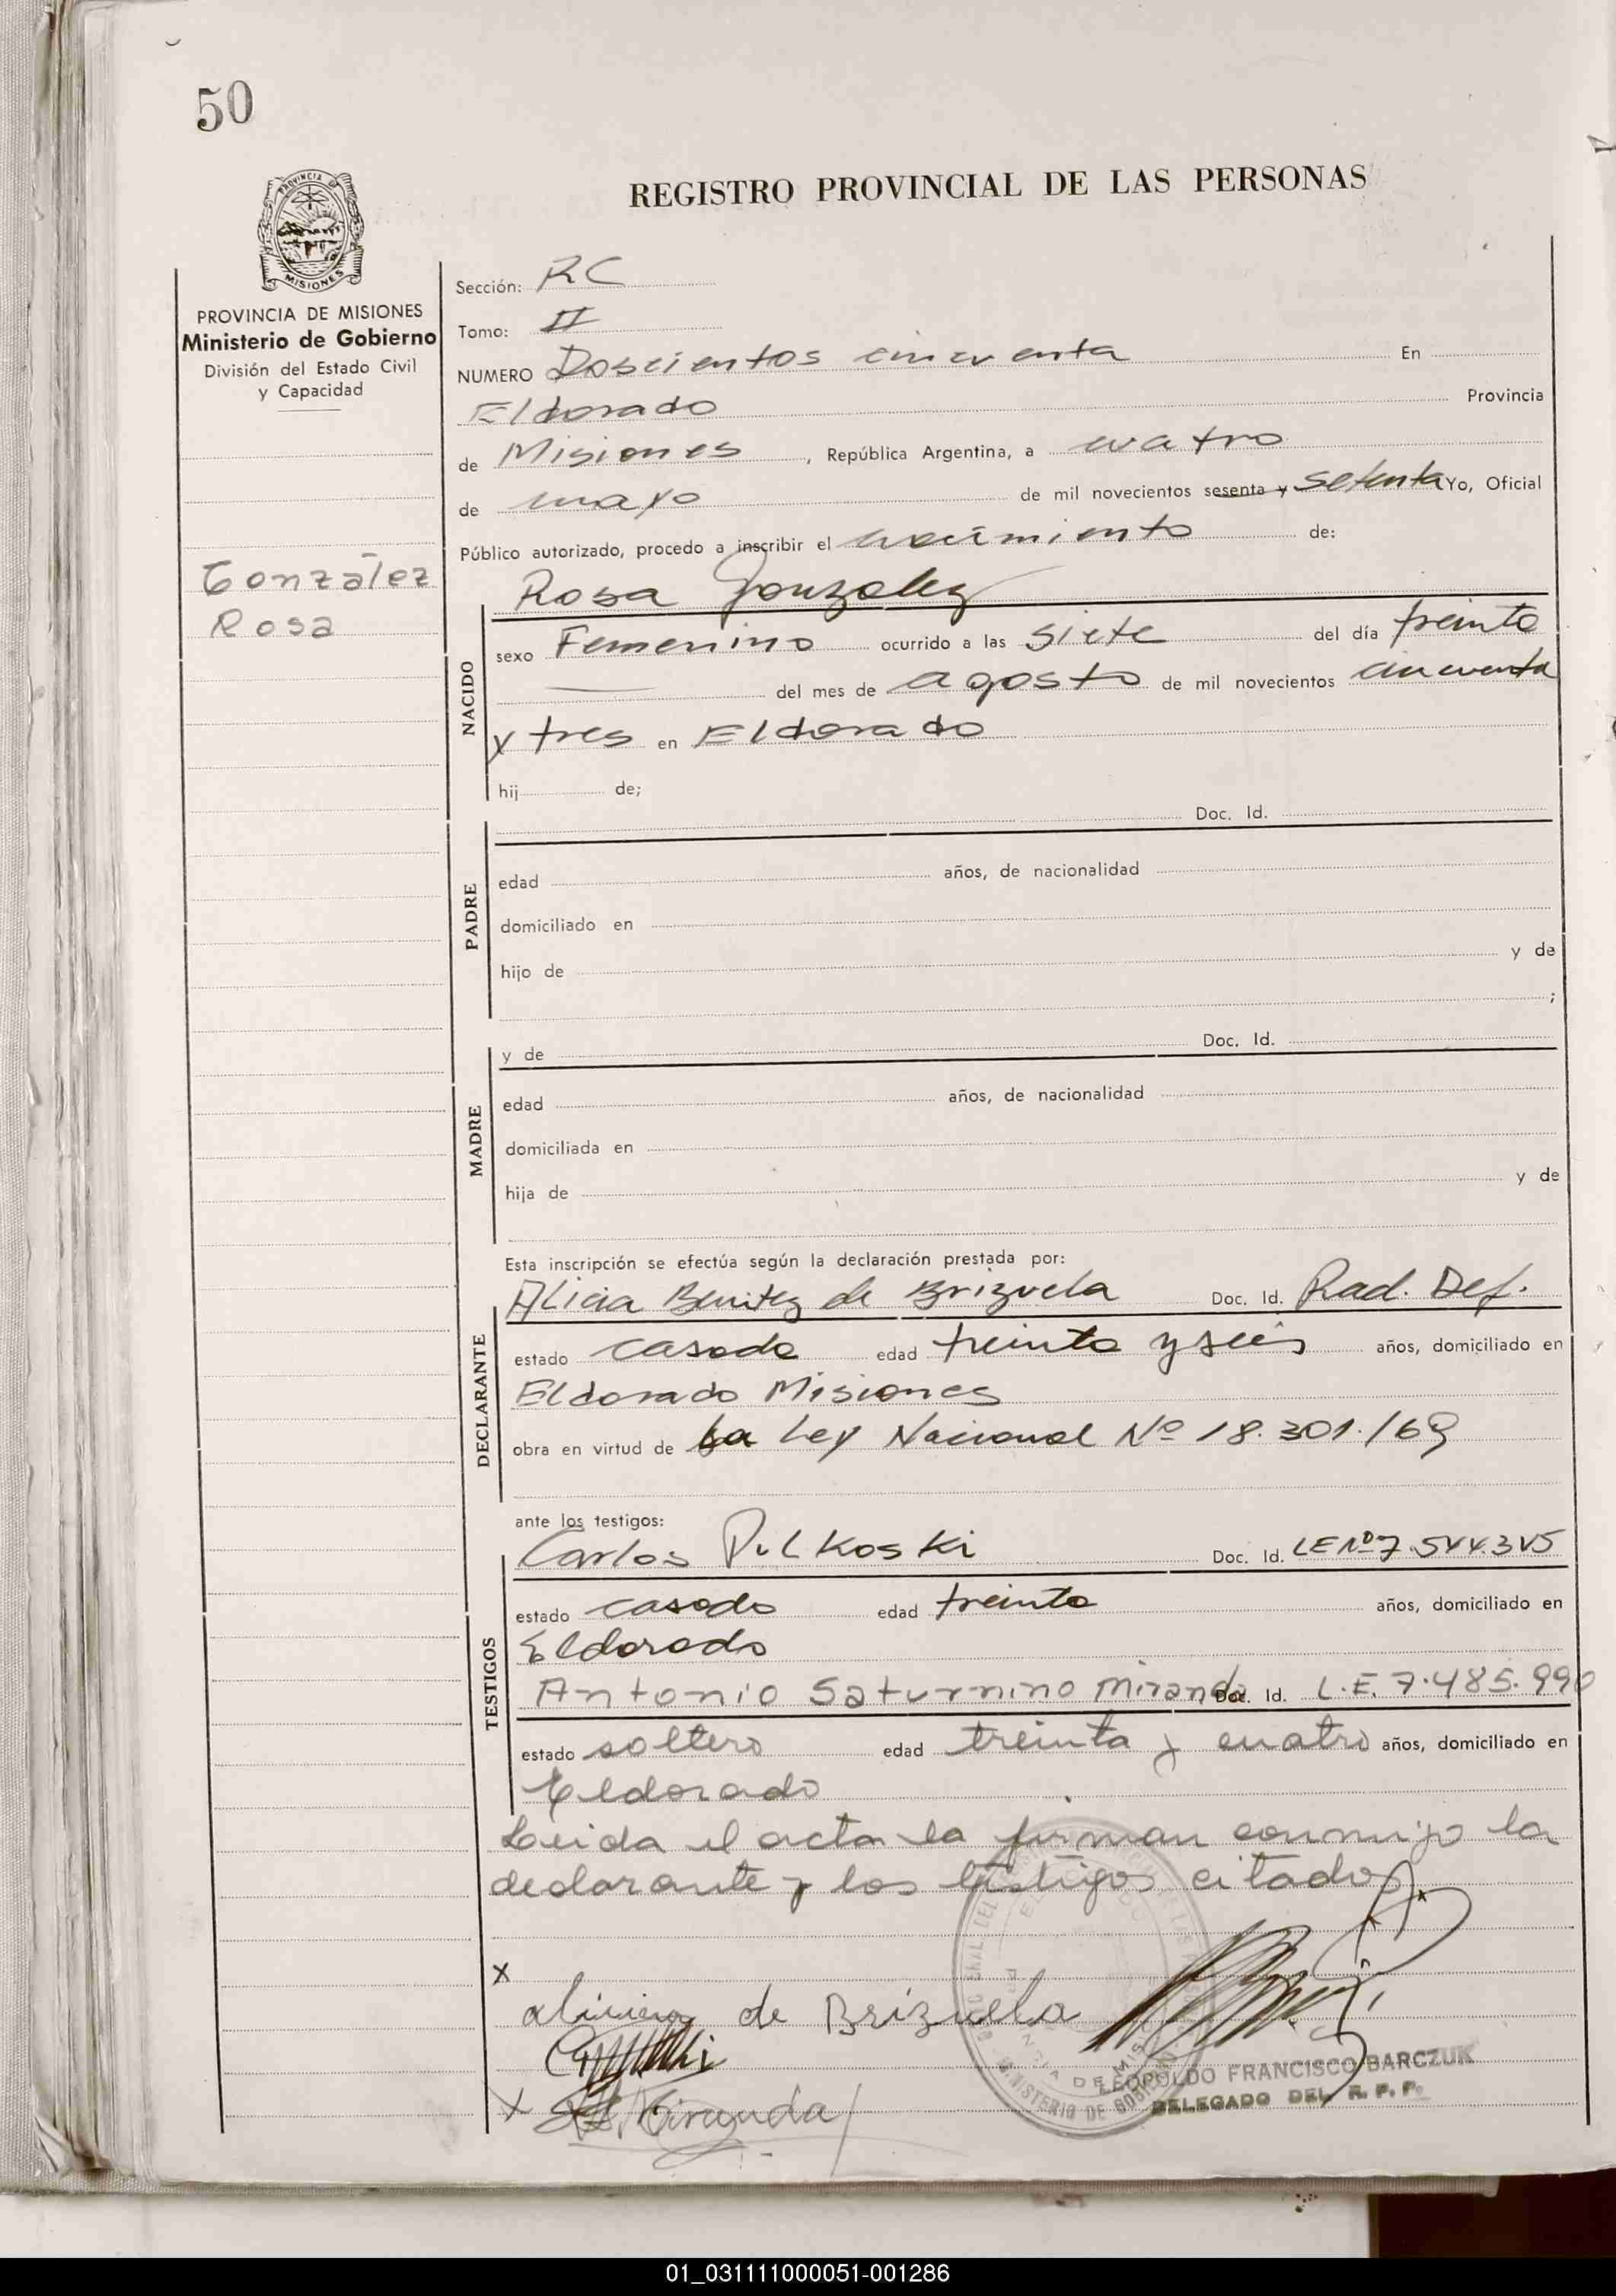 50
REGISTRO PROVINCIAL DE LAS PERSONAS
PROVINCIA DE MISIONES
PROVINCIA DE MISIONES
Ministerio de Gobierno
División del Estado Civil
y Capacidad
González
Rosa
Sección: RC
Tomo: II
NUMERO Doscientos cincuenta En
Eldorado Provincia
de Misiones, República Argentina, a cuatro
de mayo de mil novecientos sesenta y setenta Yo, Oficial
Público autorizado, procedo a inscribir el nacimiento de:
Rosa Gonzalez
NACIDO
sexo Femenino ocurrido a las siete del día treinta
del mes de agosto de mil novecientos cincuenta
y tres en Eldorado
hij de;
Doc. Id.
PADRE
edad años, de nacionalidad
domiciliado en
hijo de y de
;
y de Doc. Id.
MADRE
edad años, de nacionalidad
domiciliada en
hija de y de
Esta inscripción se efectúa según la declaración prestada por:
Alicia Benitez de Brizuela Doc. Id. Rad. Def.
DECLARANTE
estado casada edad treinta y seis años, domiciliado en
Eldorado Misiones
obra en virtud de La Ley Nacional Nº 18.301./69
ante los testigos:
Carlos Pilkoski Doc. Id. LE Nº 7.544.345
TESTIGOS
estado casado edad treinta años, domiciliado en
Eldorado
Antonio Saturnino Miranda Doc. Id. L.E. 7.485.990
estado soltero edad treinta y cuatro años, domiciliado en
Eldorado
Leida el acta la firman conmigo la
declarante y los testigos citados
x
de Brizuela
x Miranda
LEOPOLDO FRANCISCO BARCZUK
DELEGADO DEL R. P. P.
MINISTERIO DE
01_031111000051-001286